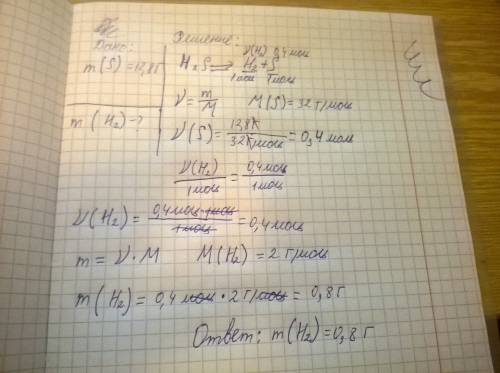 Дано:
m(S)=12,8г
m(H₂)-?
Решение:
ν(H₂) 0,4 моль
H₂S ⇒ H₂ + S
1моль 1моль
ν = m/M M(S)=32 г/моль
ν(S) = 12,8г/32г/моль = 0,4 моль
ν(H₂)/1моль = 0,4моль/1моль
ν(H₂) = 0,4моль·1моль/1моль = 0,4моль
m = ν · M M(H₂) = 2 г/моль
m(H₂) = 0,4 моль · 2 г/моль = 0,8 г
Ответ: m(H₂)=0,8 г